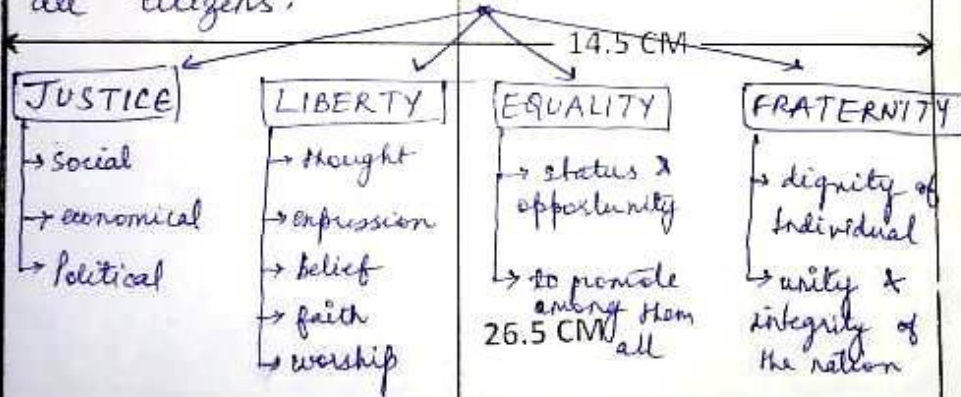 all citizens.
14.5 CM
JUSTICE
→ Social
→ economical
→ Political
LIBERTY
→ thought
→ expression
→ belief
→ faith
→ worship
EQUALITY
→ status &
opportunity
→ to promote
among them
all
26.5 CM
FRATERNITY
→ dignity of
Individual
→ unity &
integrity of
the nation